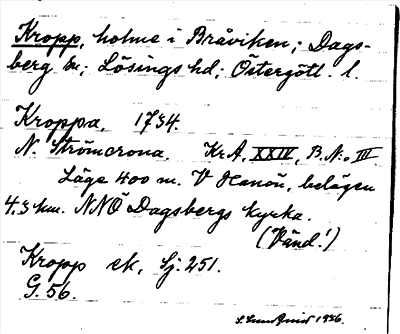 Kropp, holme i Bråviken; Dags-
berg sn; Lösings hd; Östergötl. l.
Kroppa, 1734.
N. Strömcrona. Kr.A, XXIV, B. N:o III
Läge 400 m. V Hanön, belägen
4.3 km. NNÖ Dagsbergs kyrka.
(Vänd!)
Kropp ek. Sj. 251.
G. 56.
1936.